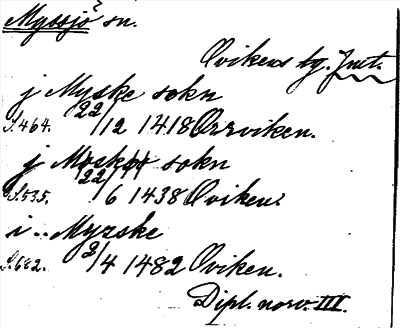 Myssjö sn.
Ovikens tg. Jmt.
j Myske sokn
S. 464. 22/12 1418 Orrviken.
j Moskøø sokn
S. 535. 22/6 1438 Oviken.
i .. Myzske
S. 682. 2/4 1482 Oviken.
Dipl. norv. III.